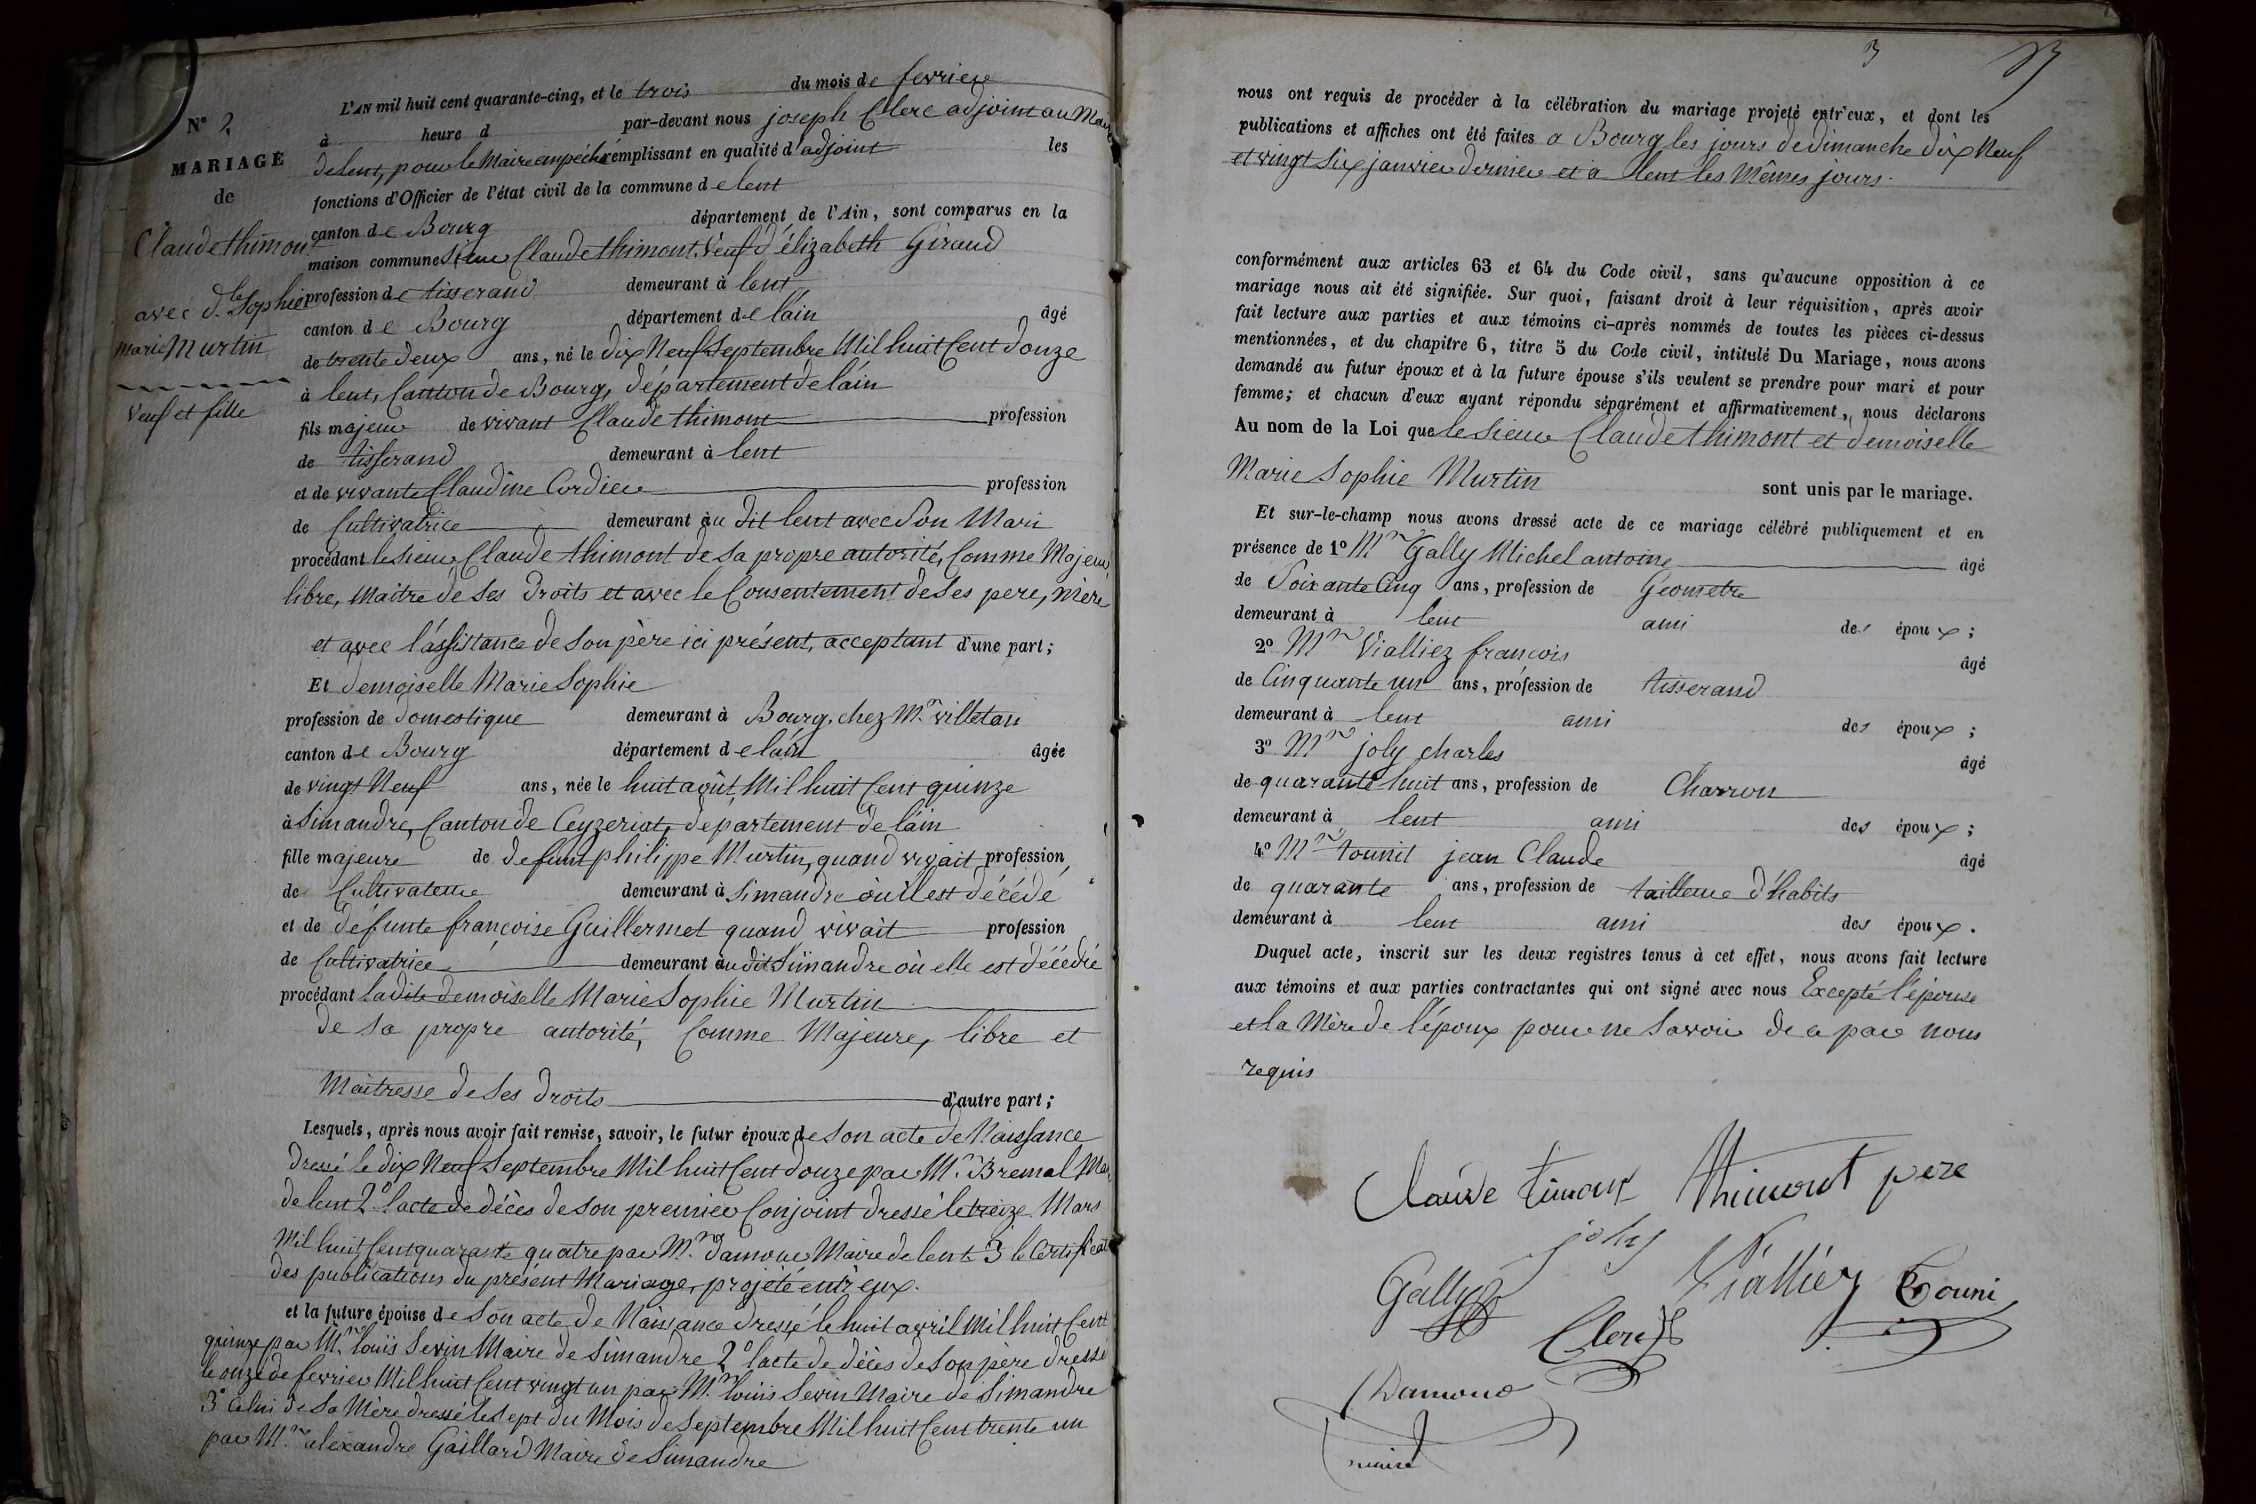 N° 2
MARIAGE
de
Claude thimont
avec d.lle Sophie
marie Murtin
Veuf et fille
L'AN mil huit cent quarante-cinq, et le trois du mois de fevrier
à heure d par-devant nous joseph Clerc adjoint au Maire
de lent, pour le Maire empéché remplissant en qualité d'adjoint les
fonctions d'Officier de l'état civil de la commune de lent
canton de Bourg département de l'Ain, sont comparus en la
maison commune Sieur Claude thimont, Veuf d'élizabeth Giraud
profession de tisserand demeurant à lent,
canton de Bourg département de l'ain âgé
de trente deux ans, né le dix Neuf Septembre Mil huit Cent douze
à lent, Canton de Bourg, département de l'ain
fils majeur de vivant Claude thimont profession
de tisserand demeurant à lent
et de vivante Claudine Cordier profession
de Cultivatrice demeurant au dit lent avec Son Mari
procédant le sieur Claude thimont de sa propre autorité, Comme Majeur,
libre, Maitre de Ses droits et avec le Consentement de Ses pere, Mère
et avec l'assistance de Son père ici présent, acceptant d'une part;
Et demoiselle Marie Sophie
profession de domestique demeurant à Bourg, chez M.r villetan
canton de Bourg département de l'ain âgée
de vingt Neuf ans, née le huit août, Mil huit Cent quinze
à Simandre, Canton de Ceyzeriat, departement de l'ain
fille majeure de defunt philippe Murtin, quand vivait profession,
de Cultivateur demeurant à Simandre où il est décédé
et de défunte françoise Guillermet quand vivait profession
de Cultivatrice demeurant au dit Simandre où elle est décédée
procédant la dite demoiselle Marie Sophie Murtin
de sa propre autorité, Comme Majeure, libre et
Maitresse de Ses droits d'autre part;
Lesquels, après nous avoir fait remise, savoir, le futur époux de Son acte de Naissance
dressé le dix Neuf Septembre Mil huit Cent douze par M.r Bremal Maire
de lent 2° l'acte de décès de son premier Conjoint dressé le treize Mars
Mil huit Cent quarante quatre par M.r damour Maire de lent 3 le Certificat
des publications du présent Mariage, projeté entr'eux.
et la future épouse de Son acte de Naissance dressé le huit avril Mil huit Cent
quinze par M.r louis Sevin Maire de Simandre 2° l'acte de décès de Son père dressé
le onze de fevrier Mil huit Cent vingt un par M.r louis Sevin Maire de Simandre
3° Celui de Sa Mère dressé le Sept du Mois de Septembre Mil huit Cent trente un
par M.r alexandre Gaillard Maire de Simandre
3
nous ont requis de procéder à la célébration du mariage projeté entr'eux, et dont les
publications et affiches ont été faites a Bourg les jours de dimanche dix Neuf
et vingt Six janvier dernier et a lent les Mêmes jours.
conformément aux articles 63 et 64 du Code civil, sans qu'aucune opposition à ce
mariage nous ait été signifiée. Sur quoi, faisant droit à leur réquisition, après avoir
fait lecture aux parties et aux témoins ci-après nommés de toutes les pièces ci-dessus
mentionnées, et du chapitre 6, titre 5 du Code civil, intitulé Du Mariage, nous avons
demandé au futur époux et à la future épouse s'ils veulent se prendre pour mari et pour
femme; et chacun d'eux ayant répondu séparément et affirmativement, nous déclarons
Au nom de la Loi que le Sieur Claude thimont et demoiselle
Marie Sophie Murtin sont unis par le mariage.
Et sur-le-champ nous avons dressé acte de ce mariage célébré publiquement et en
présence de 1° M.r Gally Michel antoine âgé
de Soixante Cinq ans, profession de Géometre
demeurant à lent ami des époux;
2° M.r Vialliez françois âgé
de Cinquante un ans, profession de tisserand
demeurant à lent ami des époux;
3° M.r joly charles âgé
de quarante huit ans, profession de Charron
demeurant à lent ami des époux;
4° M.r tounit jean Claude âgé
de quarante ans, profession de tailleur d'habits
demeurant à lent ami des époux.
Duquel acte, inscrit sur les deux registres tenus à cet effet, nous avons fait lecture
aux témoins et aux parties contractantes qui ont signé avec nous Excepté l'épouse
et la Mère de l'époux pour ne Savoir de ce par nous
requis
Claude timont thimont pere
joly
Gally Vialliez Touni
Clerc
Damour
maire